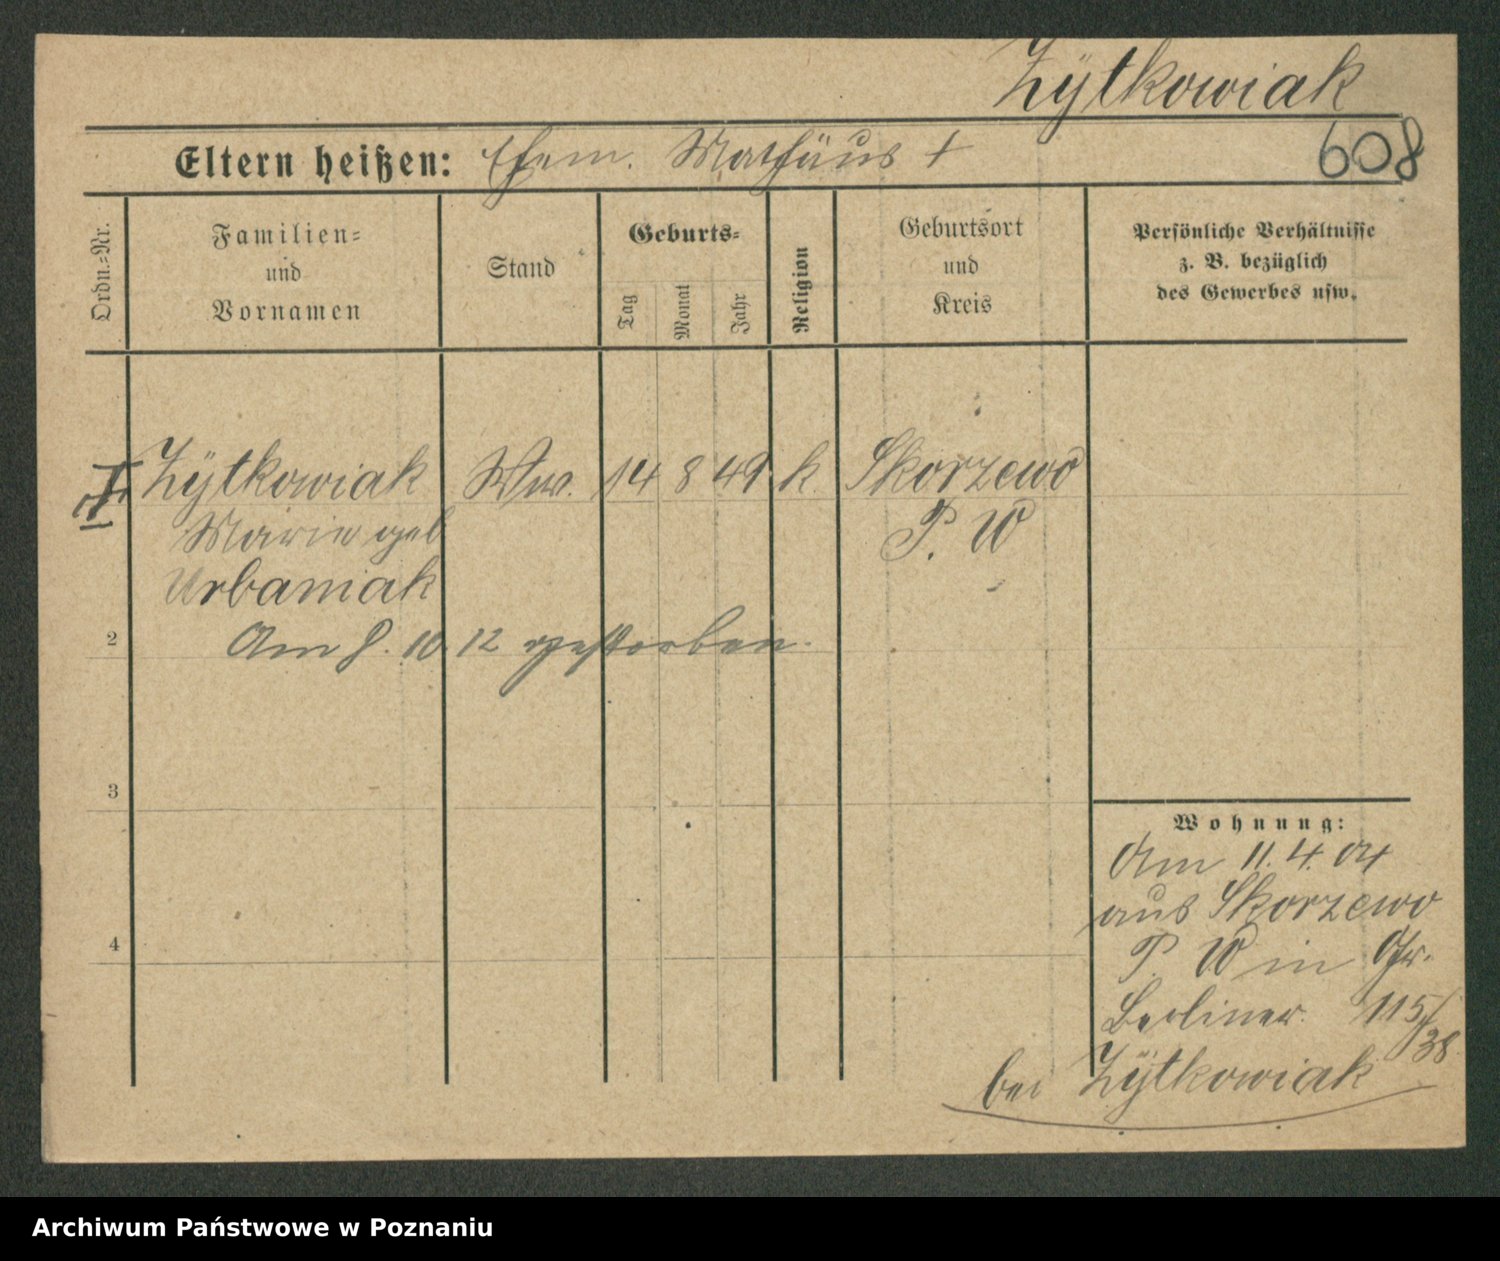 Zÿtkowiak
608
Eltern heißen: Ehem. Mathäus +
Ordn.-Nr.
Familien-
und
Vornamen
Stand
Geburts-
Tag
Monat
Jahr
Religion
Geburtsort
und
Kreis
Persönliche Verhältnisse
z. B. bezüglich
des Gewerbes usw.
I. Zÿtkowiak Ww. 14 8 49 k. Skorzewo
Marie geb P. W
Urbaniak
2 Am 8. 10. 12 gestorben.
3
4
Wohnung:
Am 11. 4. 04
aus Skorzewo
P. W in Gr.
Berliner. 115/38
bei Zÿtkowiak
Archiwum Państwowe w Poznaniu